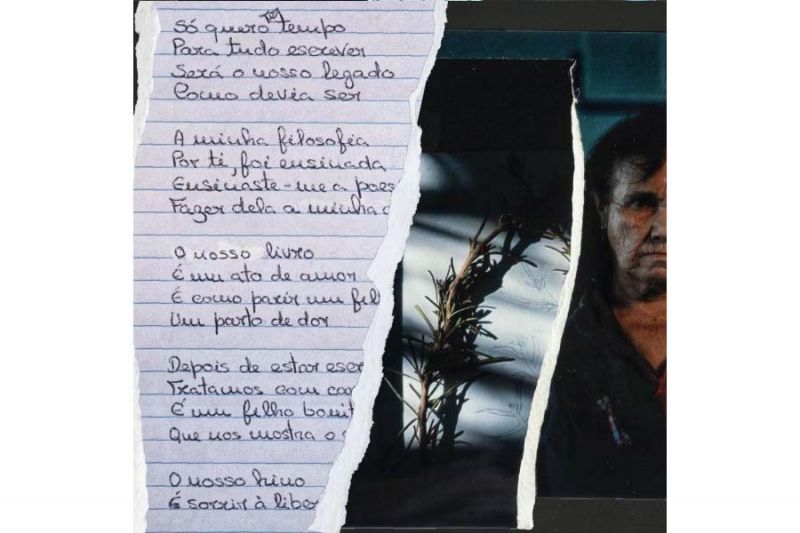 Só quero tempo
Para tudo escrever
Será o nosso legado
Como devia ser
A minha filosofia
Por ti, foi ensinada
Ensinaste-me a poes
Fazer dela a minha
O nosso livro
É um ato de amor
É como parir um fil
Um parto de dor
Depois de estar escr
Tratamos com car
É um filho bonit
Que nos mostra o
O nosso hino
É sorrir à liber